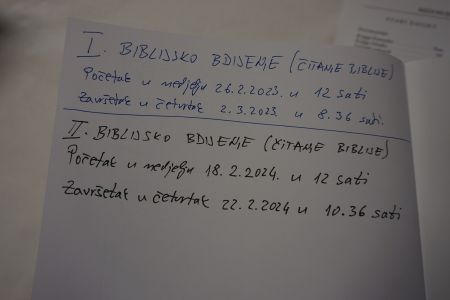 I. BIBLIJSKO BDIJENJE (ČITANJE BIBLIJE)
Početak u nedjelju 26.2.2023. u 12 sati
Završetak u četvrtak 2.3.2023. u 8.36 sati.
II. BIBLIJSKO BDIJENJE (ČITANJE BIBLIJE)
Početak u nedjelju 18.2.2024. u 12 sati
Završetak u četvrtak 22.2.2024 u 10.36 sati